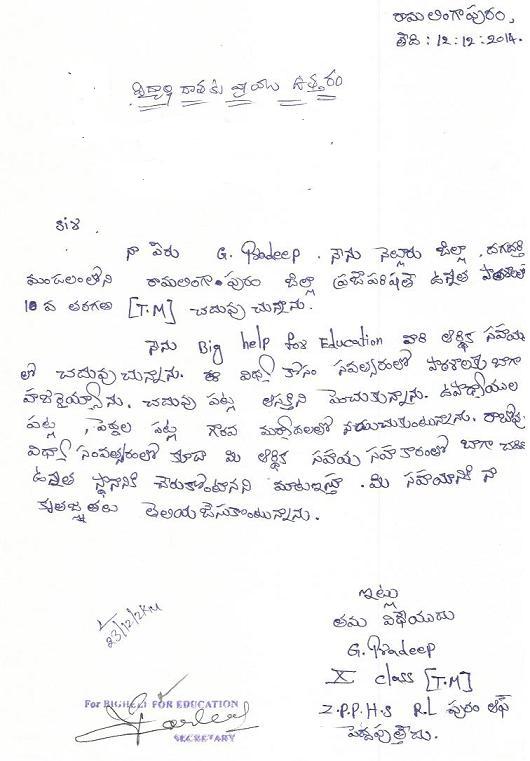 రామలింగాపురం,
తేది : 12:12:2014.
విద్యార్థి దాతకు వ్రాయు ఉత్తరం
Sir.
నా పేరు G. Pradeep. నేను నెల్లూరు జిల్లా, దగదర్తి
మండలంలోని రామలింగాపురం జిల్లా ప్రజాపరిషత్ ఉన్నత
10 వ తరగతి [T.M] చదువు చున్నాను.
నేను Big help for Education వారి ఆర్థిక సహాయ
లో చదువుచున్నాను. ఈ విద్యా కోసం సవత్సరంలో పాఠశాలకు బాగా
హాజరైయ్యాను. చదువు పట్ల ఆసక్తిని పెంచుకున్నాను. ఉపాధ్యాయుల
పట్ల, పెద్దల పట్ల గౌరవ మర్యాదలలో
విద్యా సంవత్సరంలో కూడా మి ఆర్థిక సహాయ సహకారంలో బాగా
ఉన్నత స్థానానికి చేరుకొంటానని మాటఇస్తూ. మి సహాయానికి నా
కృతజ్ఞతలు తెలియజేసుకొంటున్నాను.
ఇట్లు
తమ విధేయుడు
G. Pradeep
X class [T.M]
Z.P.P.H.S R.L పురం ఆఫ్
పెద్దపుత్తేడు.
23/12/2014
For BIGHELP FOR EDUCATION
SECRETARY